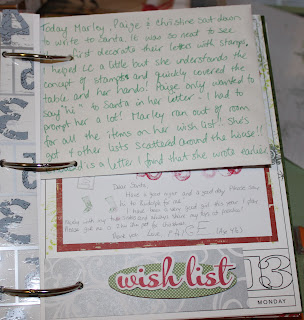 Today Marley, Paige & Christine sat down
to write to Santa. It was so neat to see
first decorate their letters with stamps,
I helped CC a little but she understands the
concept of stamps and quickly covered the
table and her hands! Paige only wanted to
say "hi" to Santa in her letter - I had to
prompt her a lot! Marley ran out of room
for all the items on her wish list!! She's
got 4 other lists scattered around the house!!
is a letter I find that she wrote earlier
Dear Santa,
Have a good year and a good day. Please say
hi to Rudolph for me.
I have been a very good girl this year. I play
with my
Please get me
Thank you Love, PAIGE
wish list
13
MONDAY